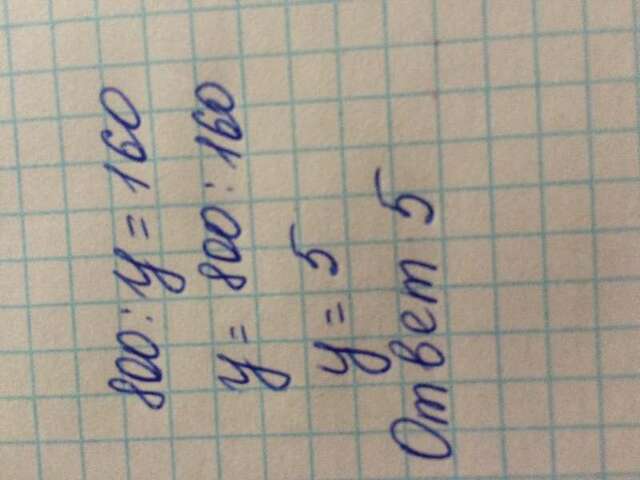 800 : y = 160
y = 800 : 160
y = 5
Ответ 5